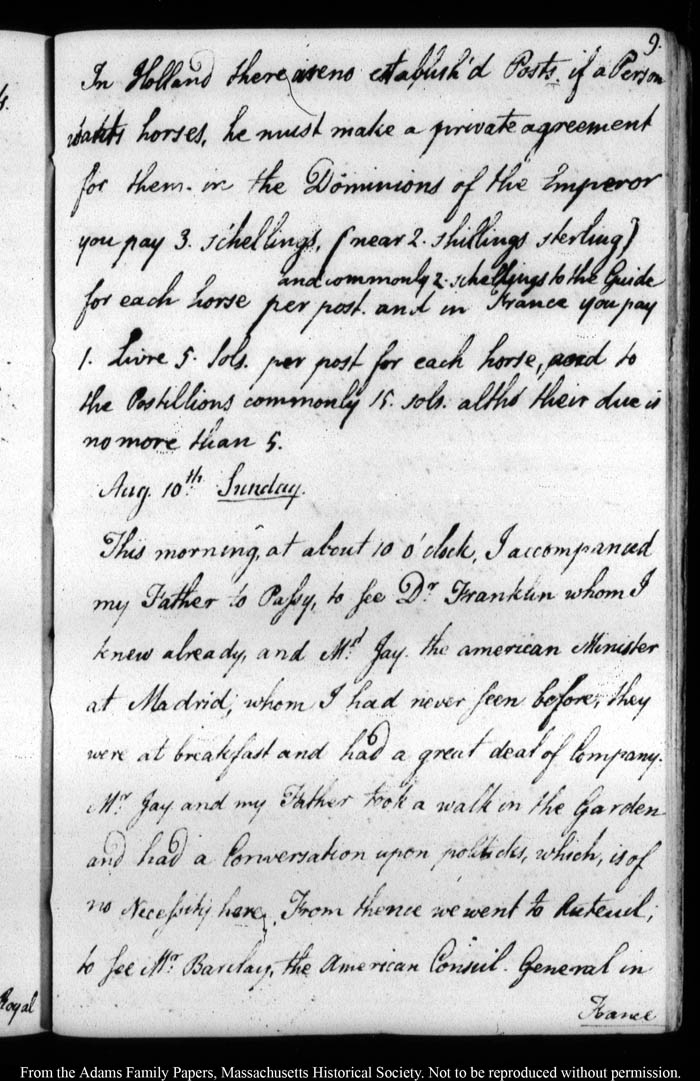 9.
In Holland there are no establish'd Posts. if a Person
wants horses, he must make a private agreement
for them. in the Dominions of the Emperor
you pay 3. schellings, (near 2. shillings sterling)
and commonly 2. schellings to the Guide
for each horse per post. and in France you pay
1. Livre 5. sols. per post for each horse, and to
the Postillions commonly 15. sols. altho' their due is
no more than 5.
Aug. 10th. Sunday.
This morning, at about 10 o'clock, I accompanied
my Father to Passy, to see Dr. Franklin whom I
knew already, and Mr. Jay. the american Minister
at Madrid; whom I had never seen before, they
were at breakfast and had a great deal of Company.
Mr. Jay and my Father took a walk in the Garden
and had a Conversation upon politicks, which, is of
no Necessity here. From thence we went to Auteuil;
to see Mr. Barclay, the American Consul. General in
France
s.
Royal
From the Adams Family Papers, Massachusetts Historical Society. Not to be reproduced without permission.